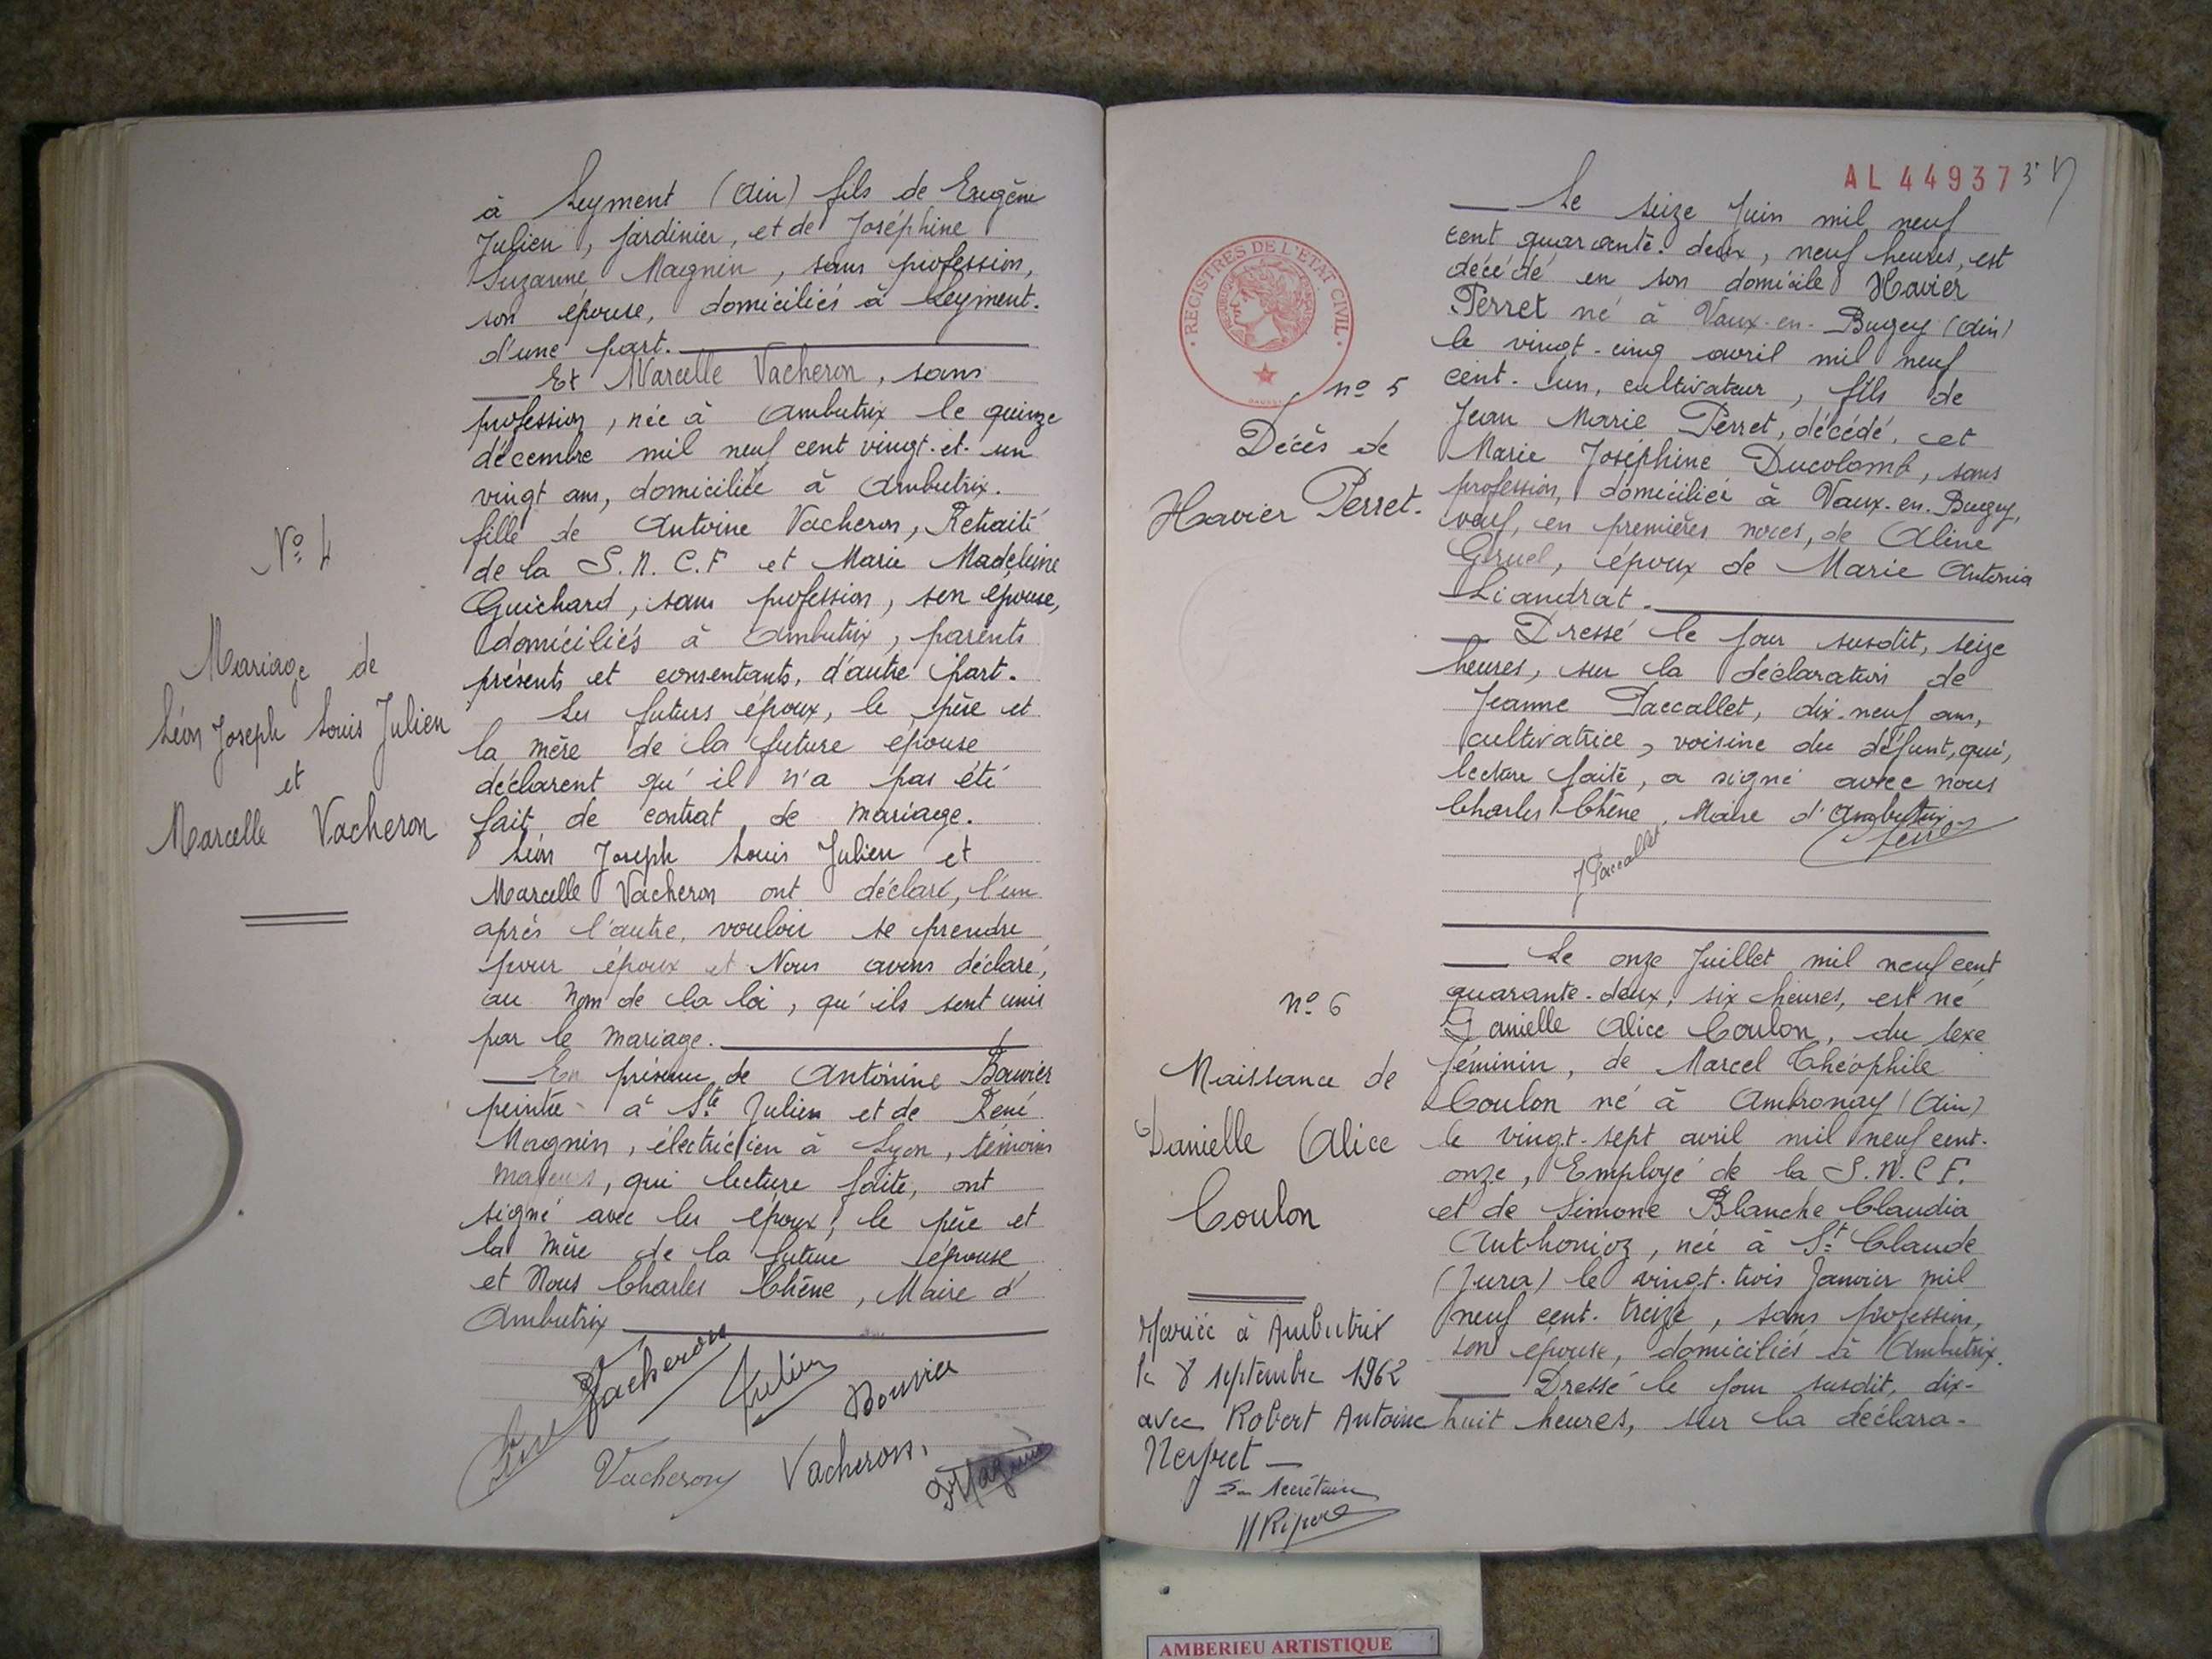 à Leyment (Ain) fils de Eugène
Julien, jardinier, et de Joséphine
Suzanne Magnin, sans profession,
son épouse, domiciliés à Leyment.
d'une part.
Et Marcelle Vacheron, sans
profession, née à Ambutrix le quinze
décembre mil neuf cent vingt-et-un
vingt ans, domiciliée à Ambutrix.
fille de Antoine Vacheron, Retraité
de la S.N.C.F et Marie Madeleine
Guichard, sans profession, son épouse,
domiciliés à Ambutrix, parents
présents et consentants, d'autre part.
Les futurs époux, le père et
la mère de la future épouse
déclarent qu'il n'a pas été
fait de contrat de mariage.
Léon Joseph Louis Julien et
Marcelle Vacheron ont déclaré, l'un
après l'autre, vouloir se prendre
pour époux et Nous avons déclaré,
au nom de la loi, qu'ils sont unis
par le mariage.
En présence de Antonine Bouvier
peintre à Ste Julien et de René
Magnin, électricien à Lyon, témoins
majeurs, qui lecture faite, ont
signé avec les époux, le père et
la mère de la future épouse
et Nous Charles Chêne, Maire d'
Ambutrix
Vacheron Julien Bouvier
Vacheron Vacheron. Magnin
No 4
Mariage de
Léon Joseph Louis Julien
et
Marcelle Vacheron
AL 44937
REGISTRES DE L'ETAT CIVIL
Le seize Juin mil neuf
cent quarante-deux, neuf heures, est
décédé en son domicile Xavier
Perret né à Vaux-en-Bugey (Ain)
le vingt-cinq avril mil neuf
cent-un, cultivateur, fils de
Jean Marie Perret, décédé, et
Marie Joséphine Ducolomb, sans
profession, domiciliée à Vaux-en-Bugey,
veuf, en premières noces, de Aline
Gruel, époux de Marie Antonia
Liandrat.
Dressé le jour susdit, seize
heures, sur la déclaration de
Jeanne Paccallet, dix-neuf ans,
cultivatrice, voisine du défunt, qui,
lecture faite, a signé avec nous
Charles Chêne, Maire d'Ambutrix
J Paccallet
no 5
Décès de
Xavier Perret.
Le onze Juillet mil neuf cent
quarante-deux, six heures, est né
Danielle Alice Coulon, du sexe
féminin, de Marcel Théophile
Coulon né à Ambronay (Ain)
le vingt-sept avril mil neuf cent-
onze, Employé de la S.N.C.F.
et de Simone Blanche Claudia
Anthonioz, née à St Claude
(Jura) le vingt-trois Janvier mil
neuf cent-treize, sans profession,
son épouse, domiciliés à Ambutrix.
Dressé le jour susdit, dix-
huit heures, sur la déclara-
no 6
Naissance de
Danielle Alice
Coulon
Mariée à Ambutrix
le 8 septembre 1962
avec Robert Antoine
Neyret
Le secrétaire
AMBERIEU ARTISTIQUE